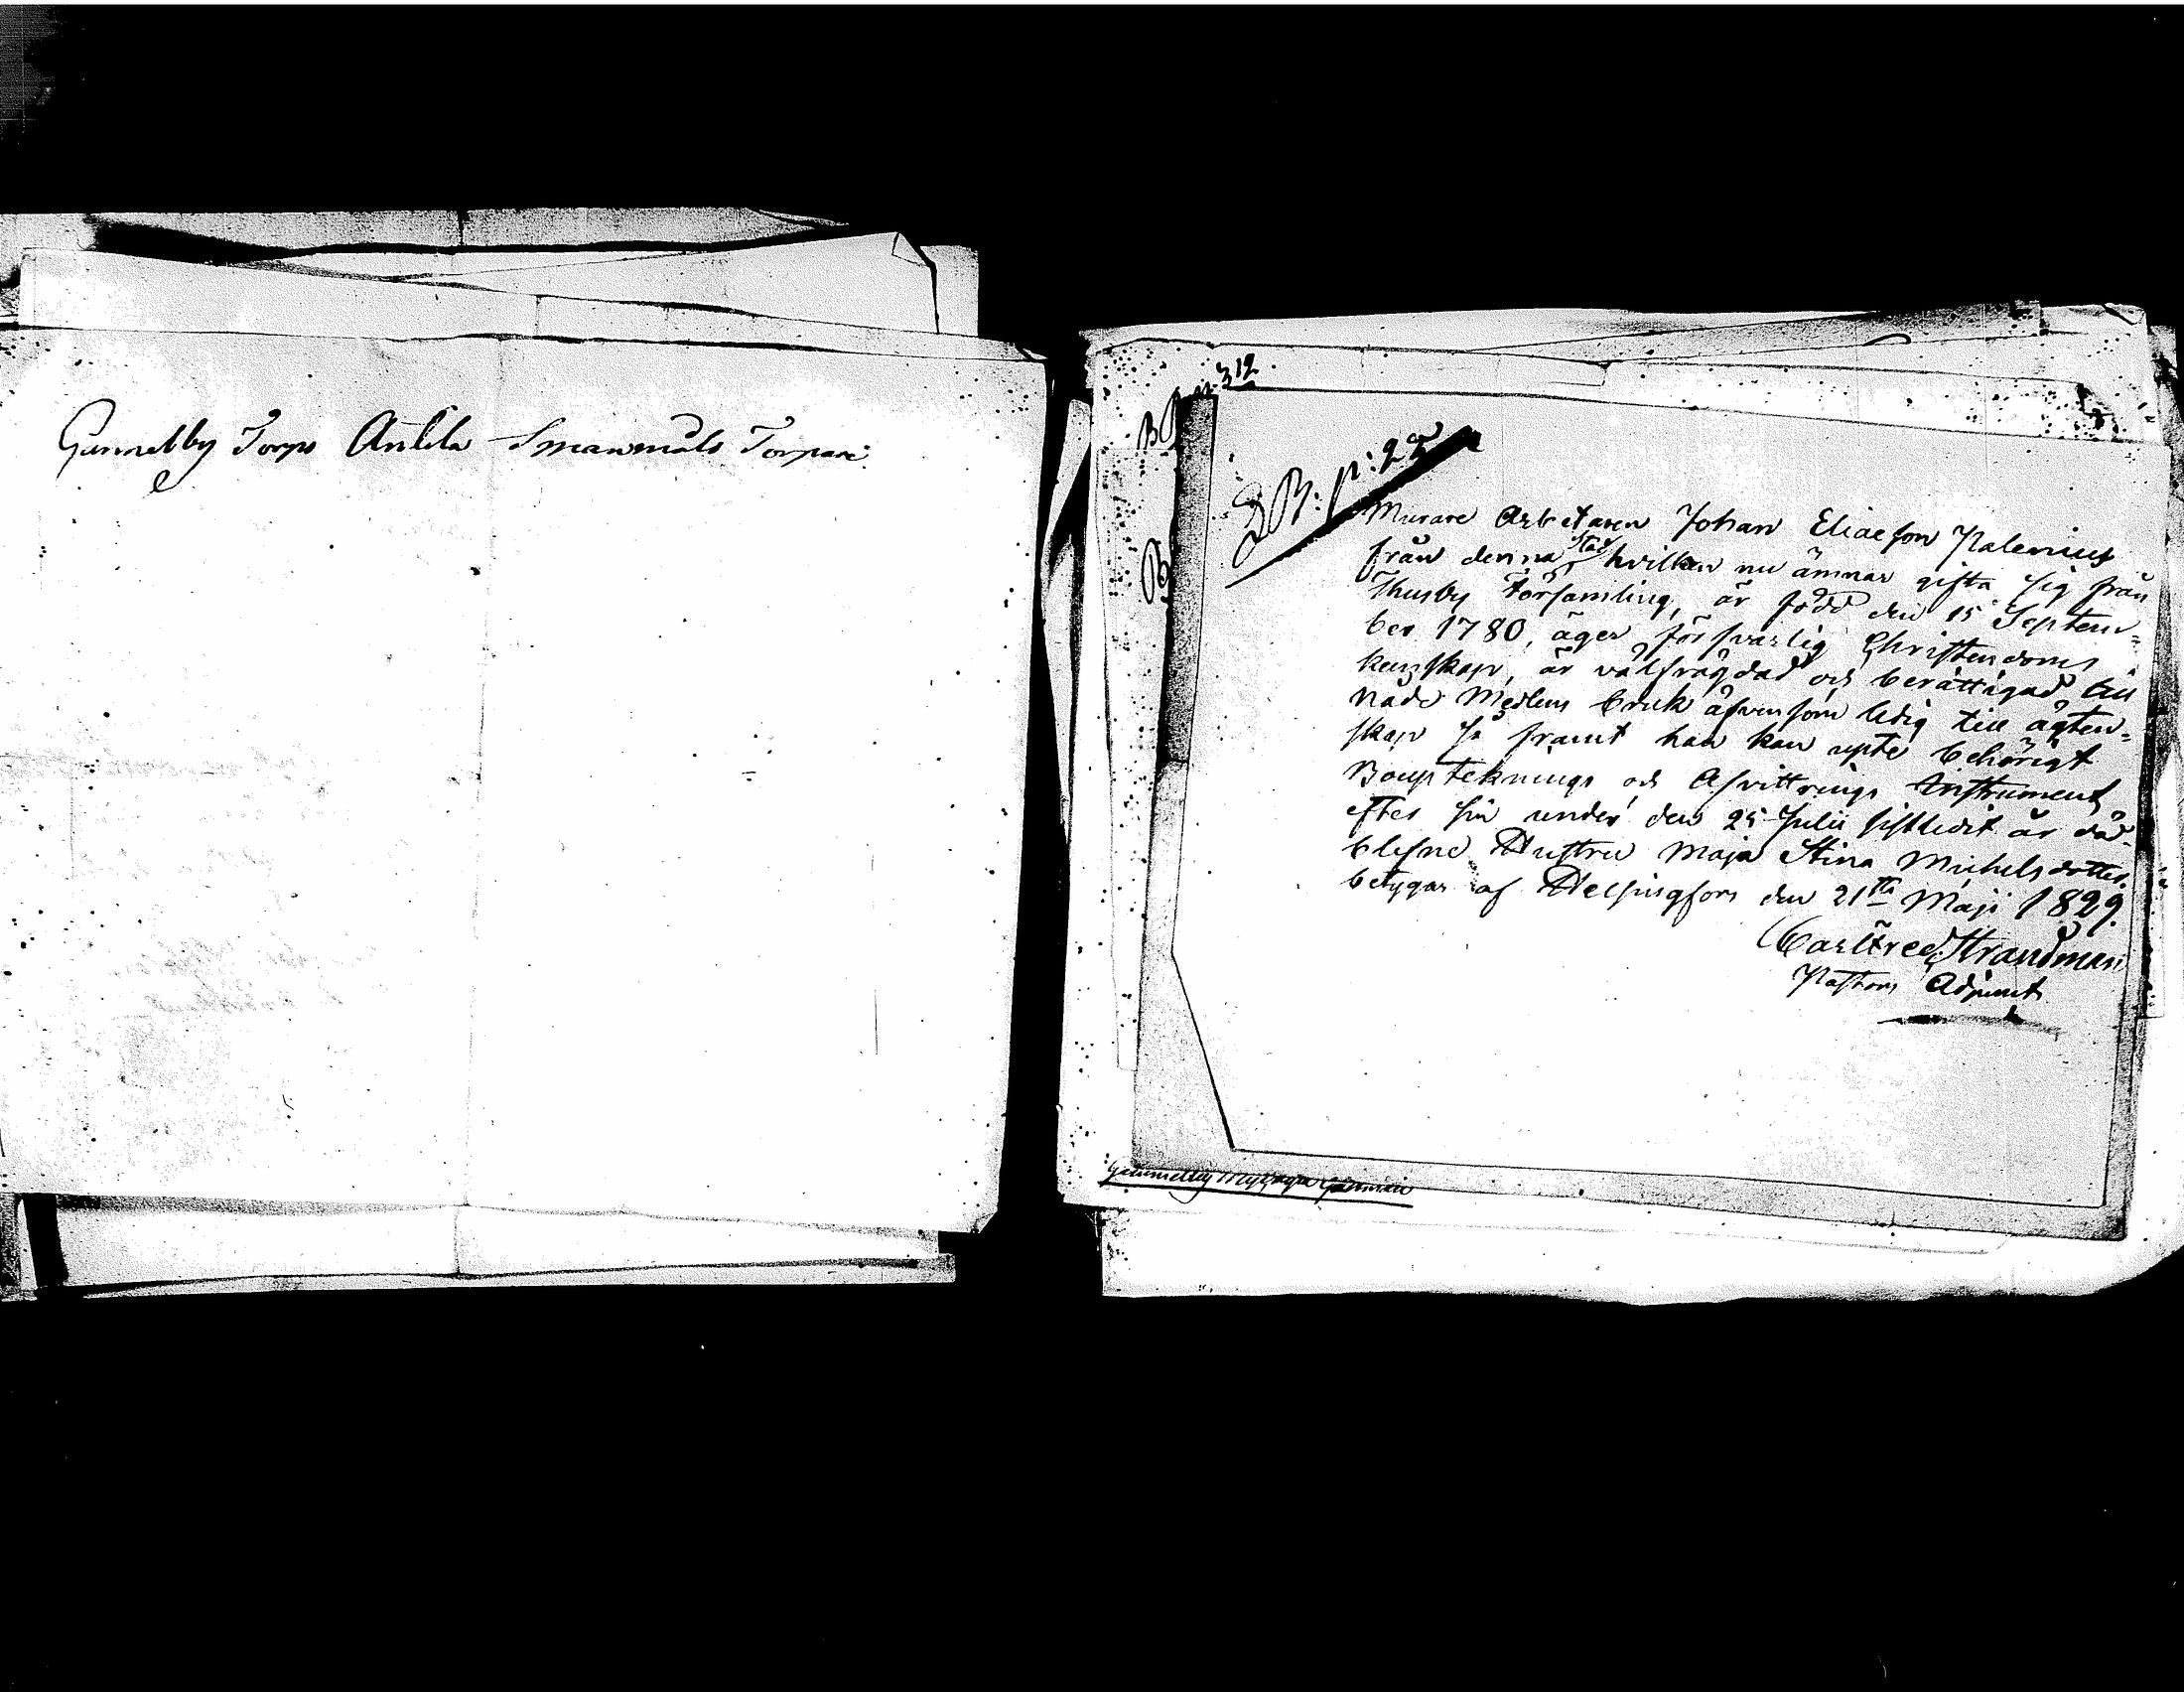 Gammelby Torps Anttila Smanmåls Torpare
312
B: p: 22
Murare Arbetaren Johan Eliaeson Palenius
från denna Stad hvilken nu ämnar gifta sig från
Thusby Församling, är född den 15 Septem-
ber 1780, äger försvarlig Christendoms
kunskap, är välfrägdad och berättigad till
Nåde Medlens bruk äfvensom ledig till ägten-
skap så framt han kan upte behörigt
Bouptecknings och Afvittrings Instrument
efter sin under den 25 Julii sistledit år död-
blefne Hustru Maja Stina Michelsdotter.
betygar af Helsingfors den 21ste Maji 1829.
Carl Fred. Strandman
Pastors Adjunct
Gammelby